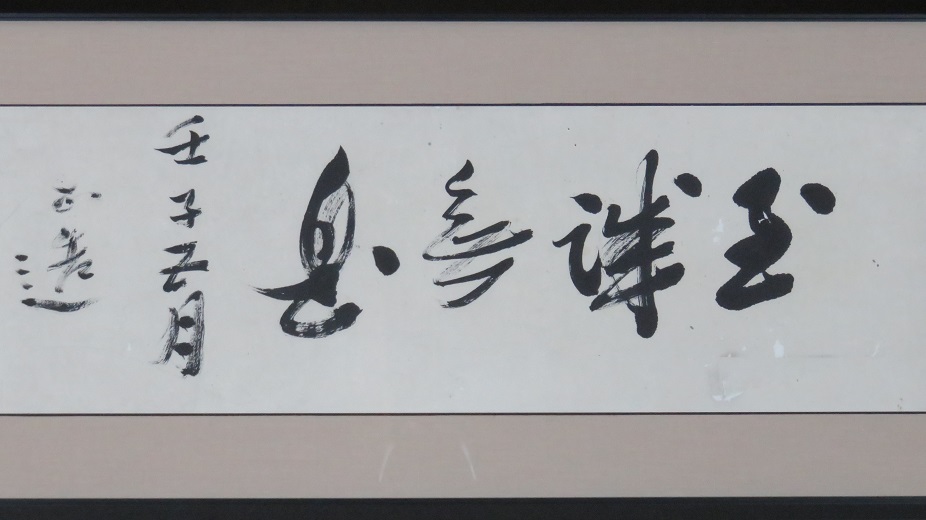 至誠無息
壬子五月